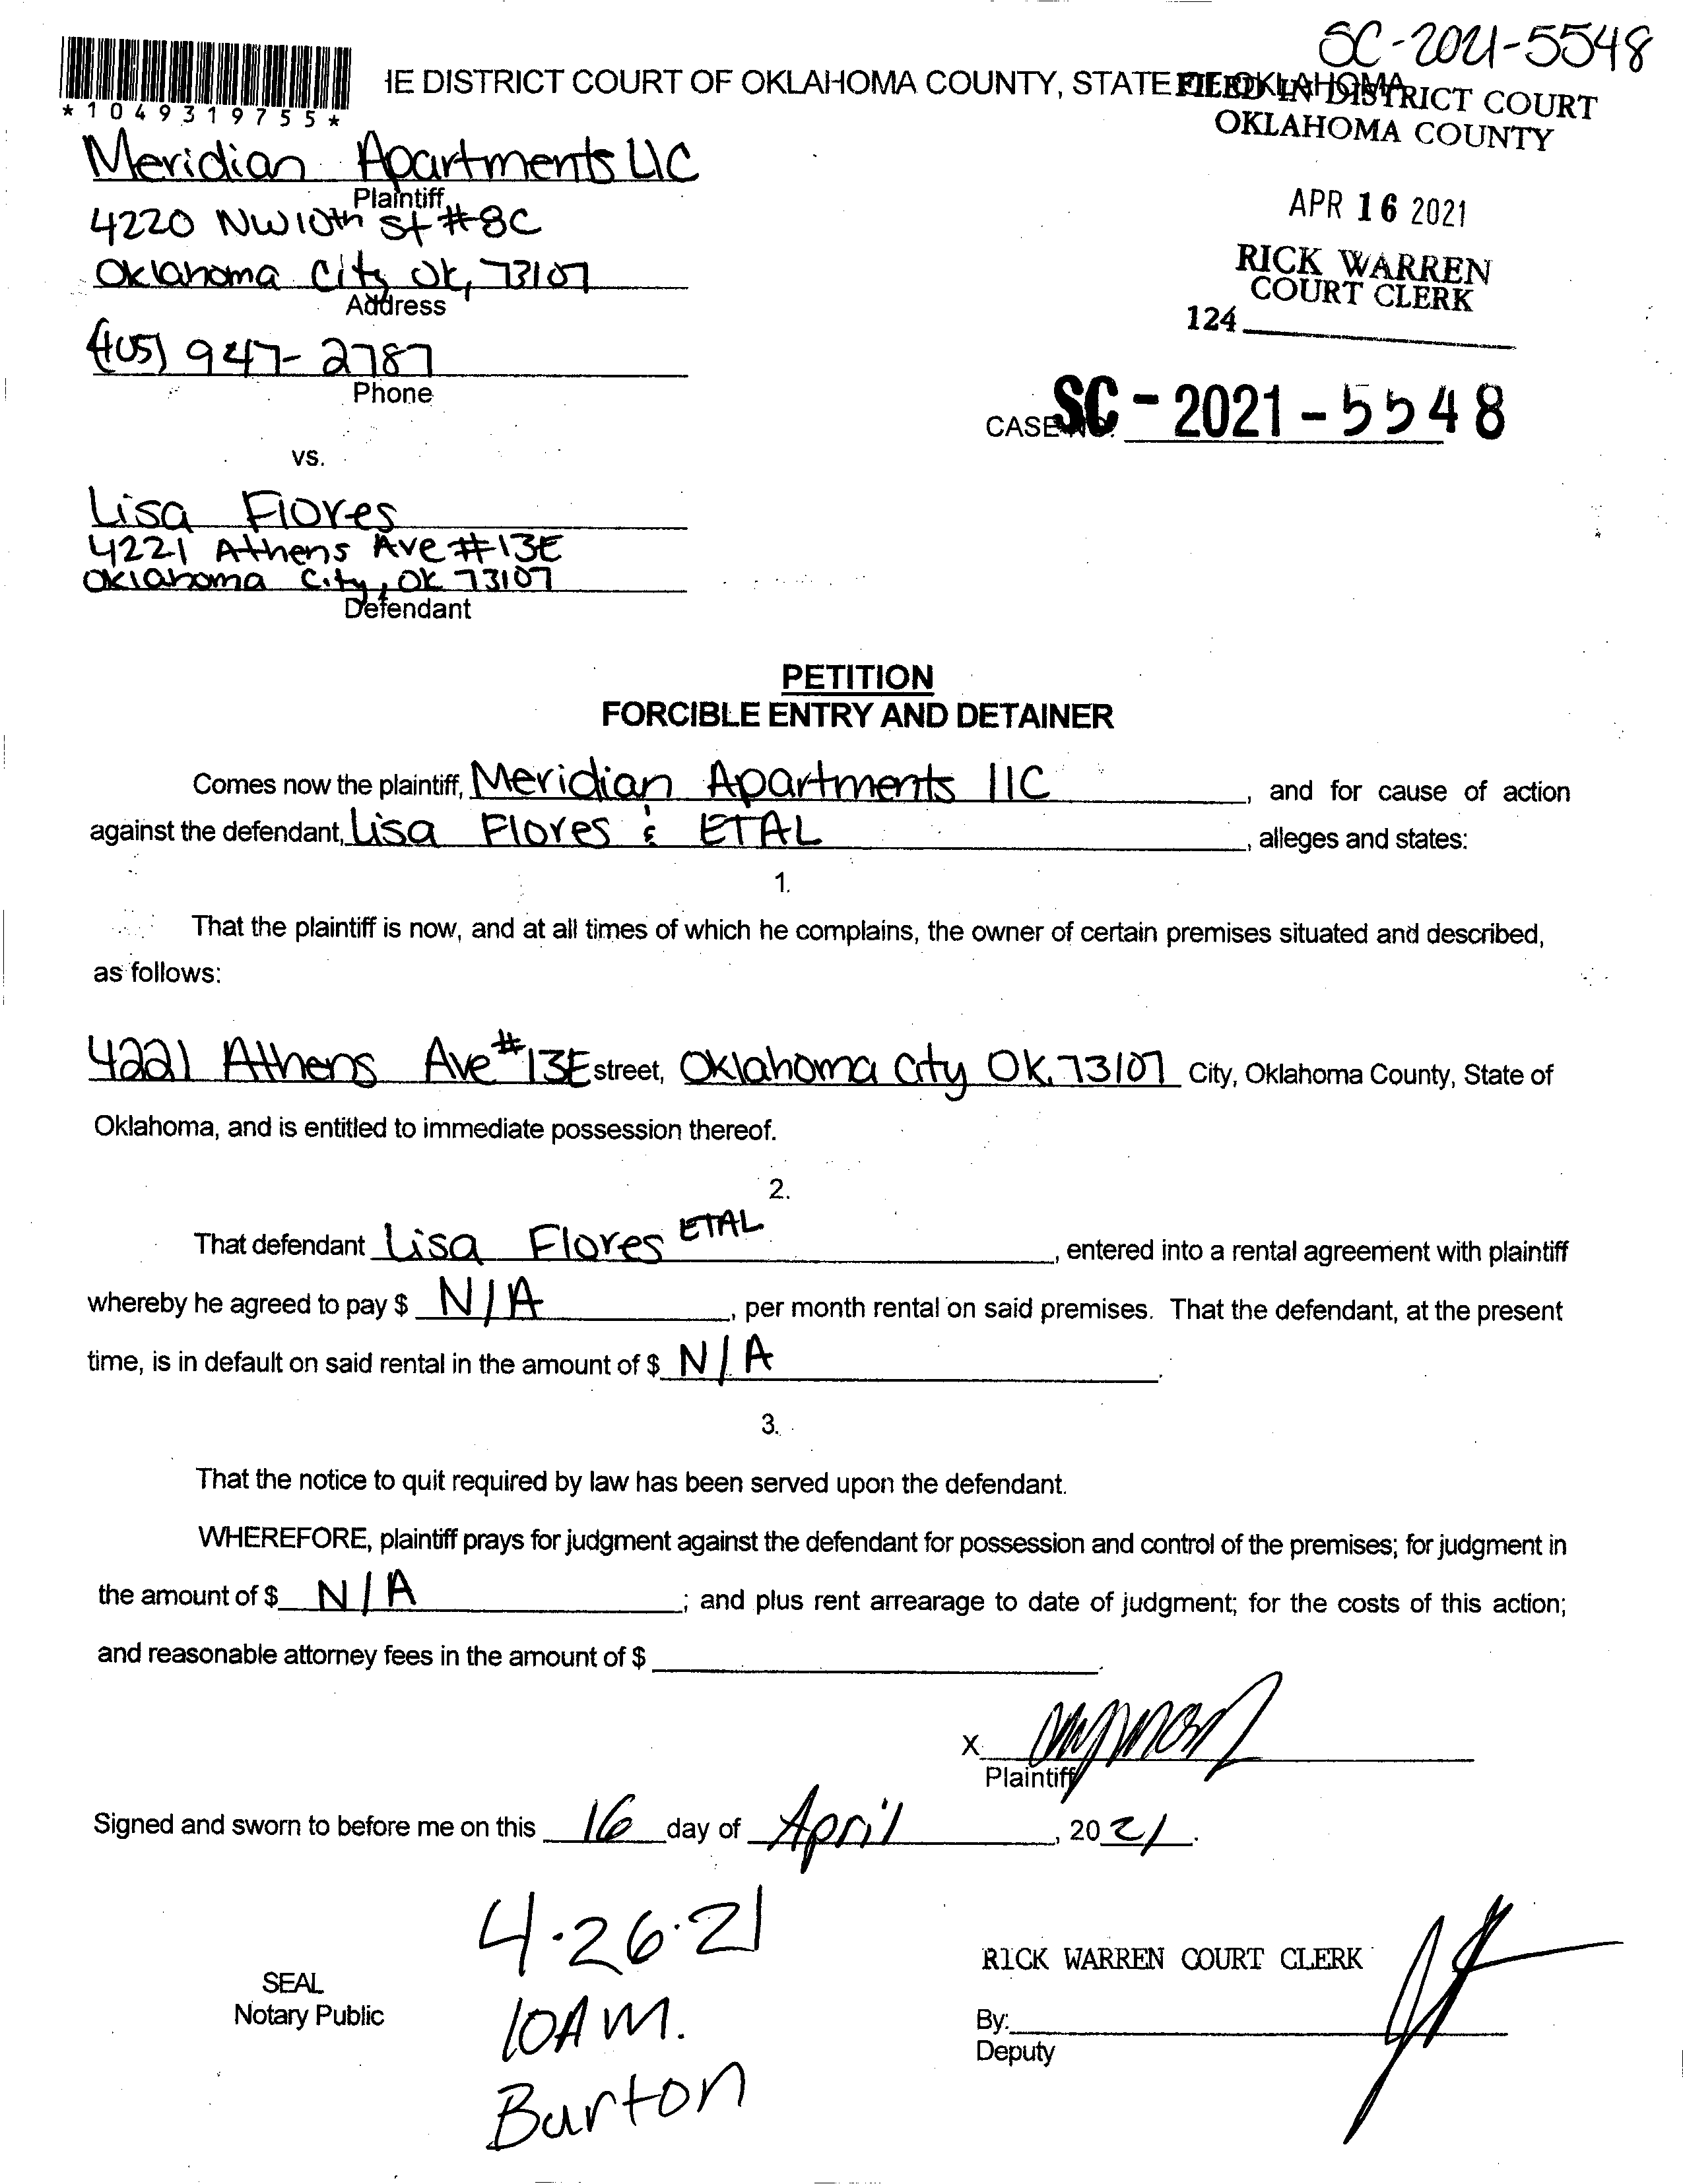 SC-2021-5548
IE DISTRICT COURT OF OKLAHOMA COUNTY, STATE OF OKLAHOMA
FILED IN DISTRICT COURT
OKLAHOMA COUNTY
*1049319755*
Meridian Apartments LLC
Plaintiff
4220 NW 10th St #8C
Oklahoma City Ok, 73107
Address
(405) 947-2787
Phone
APR 16 2021
RICK WARREN
COURT CLERK
124
CASE NO. SC-2021-5548
vs.
Lisa Flores
4221 Athens Ave #13E
Oklahoma City, OK 73107
Defendant
PETITION
FORCIBLE ENTRY AND DETAINER
Comes now the plaintiff, Meridian Apartments llC, and for cause of action
against the defendant, Lisa Flores & ETAL, alleges and states:
1.
That the plaintiff is now, and at all times of which he complains, the owner of certain premises situated and described,
as follows:
4221 Athens Ave #13E street, Oklahoma City OK. 73107 City, Oklahoma County, State of
Oklahoma, and is entitled to immediate possession thereof.
2.
That defendant Lisa Flores ETAL, entered into a rental agreement with plaintiff
whereby he agreed to pay $ N/A, per month rental on said premises. That the defendant, at the present
time, is in default on said rental in the amount of $ N/A.
3.
That the notice to quit required by law has been served upon the defendant.
WHEREFORE, plaintiff prays for judgment against the defendant for possession and control of the premises; for judgment in
the amount of $ N/A; and plus rent arrearage to date of judgment; for the costs of this action;
and reasonable attorney fees in the amount of $
X
Plaintiff
Signed and sworn to before me on this 16 day of April, 2021.
4.26.21
10AM.
Burton
SEAL
Notary Public
RICK WARREN COURT CLERK
By:
Deputy